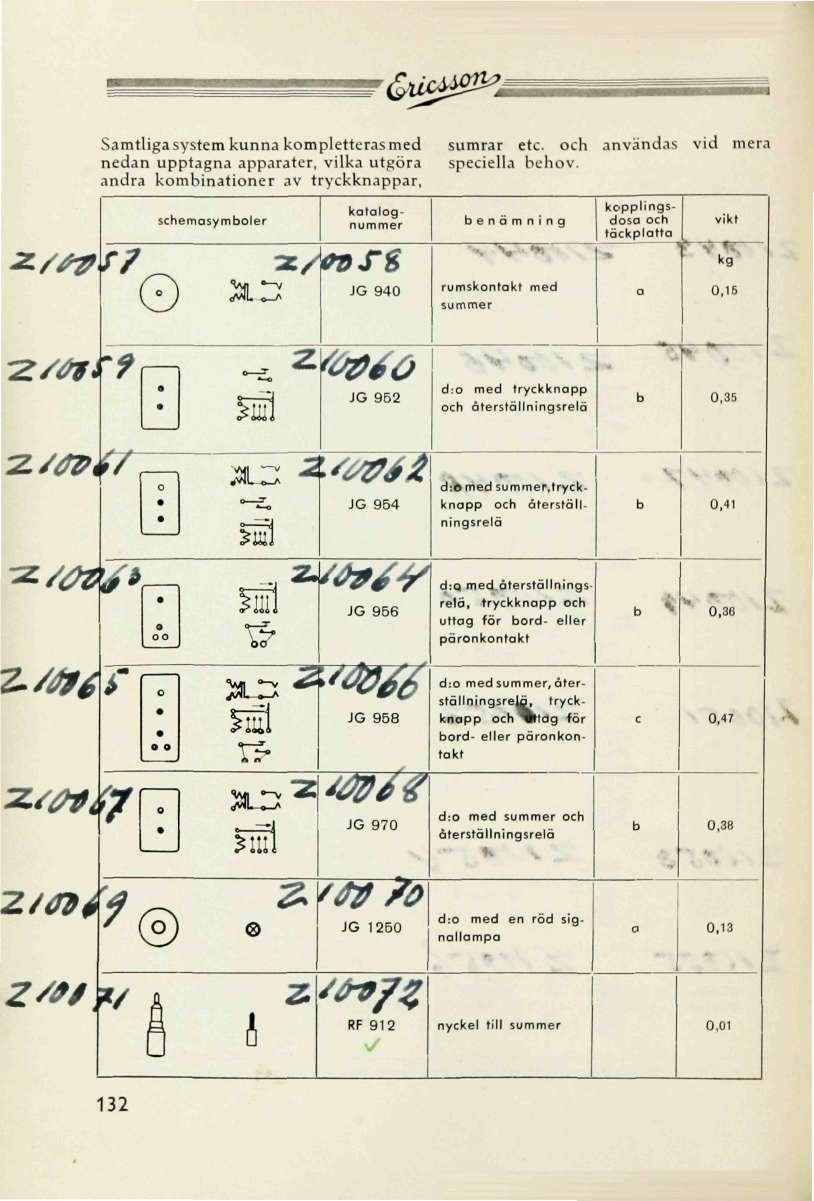 Ericsson
Samtliga system kunna kompletteras med
nedan upptagna apparater, vilka utgöra
andra kombinationer av tryckknappar,
sumrar etc. och användas vid mera
speciella behov.
schemasymboler
katalog-
nummer
benämning
kopplings-
dosa och
täckplatta
vikt
kg
Z10057 Z10058
JG 940
rumskontakt med
summer
a
0,15
Z10059 Z10060
JG 952
d:o med tryckknapp
och återställningsrelä
b
0,35
Z10061 Z10062
JG 954
d:o med summer, tryck-
knapp och återställ-
ningsrelä
b
0,41
Z10063 Z10064
JG 956
d:o med återställnings-
relä, tryckknapp och
uttag för bord- eller
päronkontakt
b
0,36
Z10065 Z10066
JG 958
d:o med summer, åter-
ställningsrelä, tryck-
knapp och uttag för
bord- eller päronkon-
takt
c
0,47
Z10067 Z10068
JG 970
d:o med summer och
återställningsrelä
b
0,38
Z10069 Z10070
JG 1250
d:o med en röd sig-
nallampa
a
0,13
Z10071 Z10072
RF 912
nyckel till summer
0,01
132